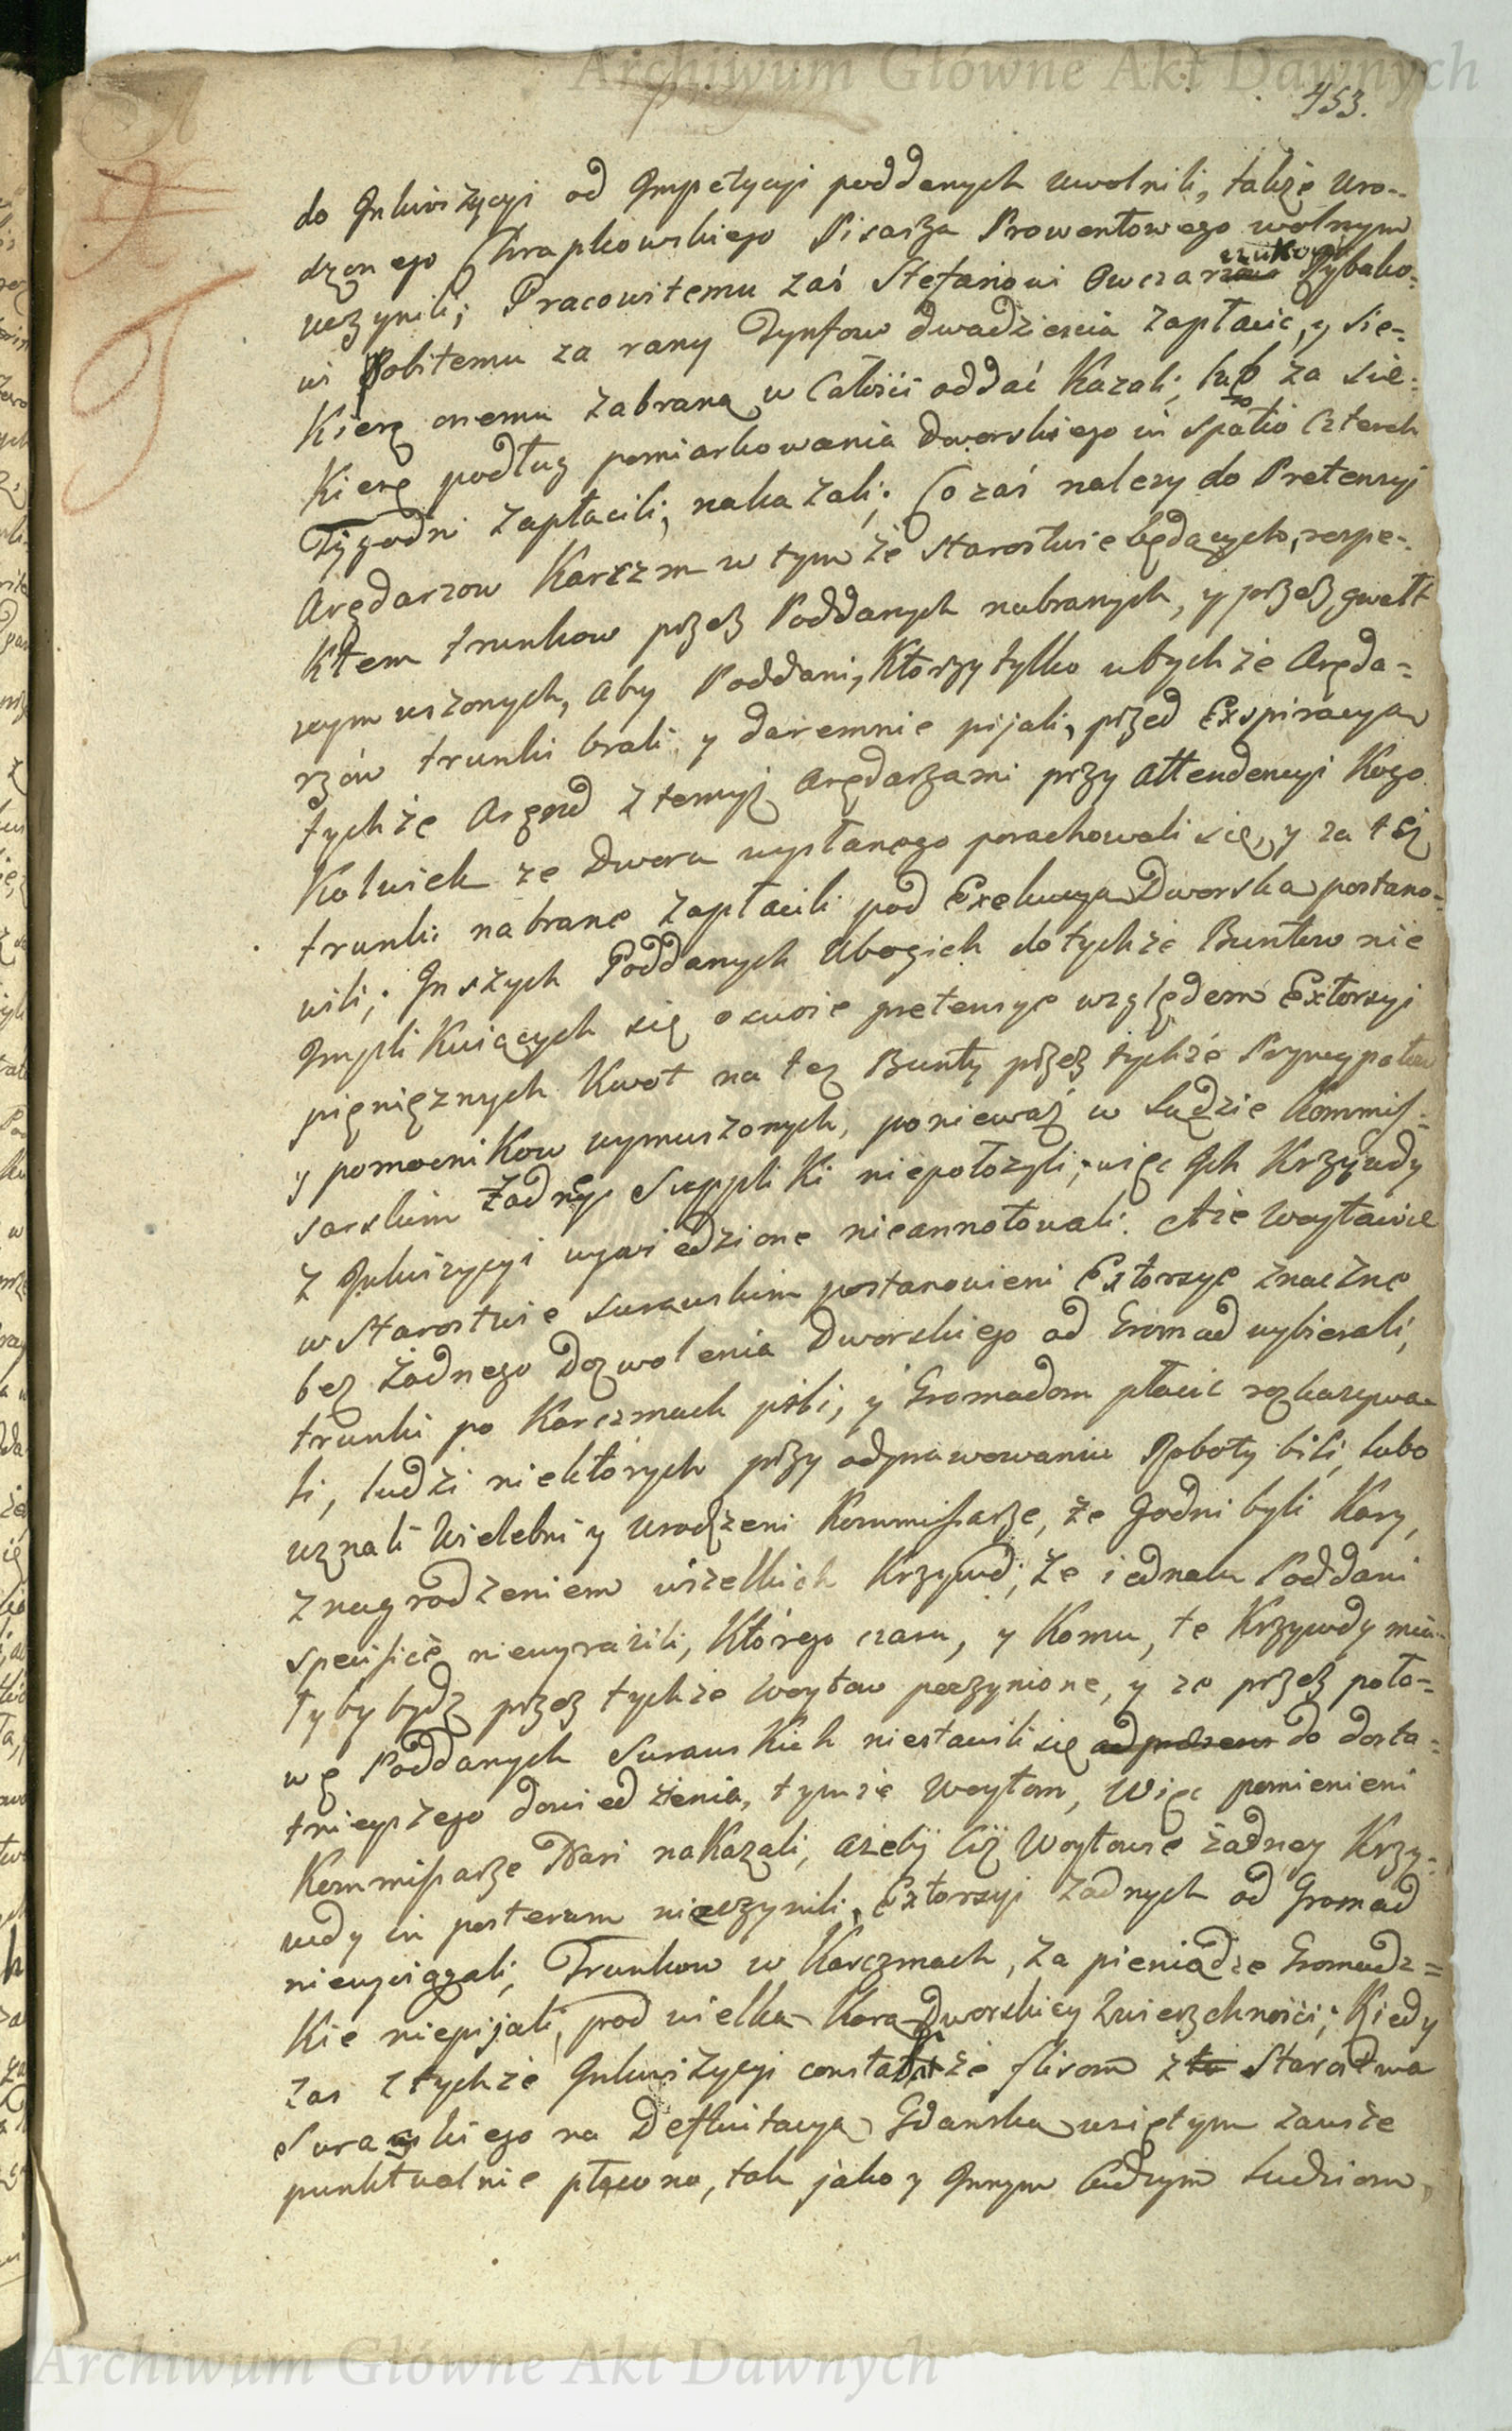 Archiwum Główne Akt Dawnych
453.
do Inkwizycyi od Impetycyi poddanych uwolnili, także Uro-
dzonego Chrapkowskiego Pisarza Prowentowego wolnym
uczynili; Pracowitemu zaś Stefanowi Owczar czukowi Rybako-
wi Pobitemu za rany Tynfow dwadziescia zapłacic, y sie-
Kierę onemu zabraną w Całości oddać Kazali, lub za sie-
Kierę podług pomiarkowania dworskiego in spatio czterech
Tygodni zapłacili, nakazali; Co zaś nalezy do Pretensyi
Arędarzow Karczm w tym że Starostwie będących, respe-
Ktem trunkow przez Poddanych nabranych, y przez gwałt
wymuszonych, aby Poddani, Ktorzy tylko u tychże Aręda-
rzów trunki brali y daremnie pijali, przed Exspiracyą
tychże Arend z temiż Arędarzami przy Attendencyi Kogo
Kolwiek ze Dwora wysłanego porachowali się, y za też
trunki nabrane zapłacili pod Exekucyą Dworską postano-
wili; Inszych Poddanych Ubogich do tychże Buntow nie
Implikuiących się o swoie pretensye względem Extorsyi
pięnięznych Kwot na też Bunty przez tychże Pryncypałow
y pomocnikow wymuszonych, ponieważ w Sądzie Kommis-
sarskim żadney Suppliki niepołozyli, więc Ich Krzywdy
z Inkwizycyi wywiedzione nieannotowali. Aże Woytowie
w Starostwie Surazskim postanowieni Extorsye znaczne
bez żadnego Dozwolenia Dworskiego od Gromad wybierali,
trunki po Karczmach pili, y Gromadom płacić rozkazywa-
li, ludzi niektórych przy odprawowaniu Roboty bili, lubo
uznali Wielebni y Urodzeni Kommissarze, że Godni byli Kary,
z nagrodzeniem wszelkich Krzywd; że iednak Poddani
specifice niewyrazili, Którego czasu, y Komu, te Krzywdy mia-
ły by bydz przez tychże Woytow poczynione, y ze przez poło-
wę Poddanych Surazskich niestawili się do dosta-
tniejszego dowiedzenia, tymże Woytom, Więc pomienieni
Kommissarze Nasi nakazali, ażeby Ciż Woytowie żadney Krzy-
wdy in posterum nieczynili, Extorsyi żadnych od Gromad
niewyciągali, Trunkow w Karczmach, za pieniądze Gromadz-
Kie niepijali, pod wielką Karą Dworskiey Zwierzchności; Kiedy
zas z tychże Inkwizycyi constat że flisom z Starostwa
Surazskiego na Defluitacyą Gdanską wziętym zawsze
punktualnie płacono, tak jako y Innym Cudzym ludziom,
Archiwum Główne Akt Dawnych